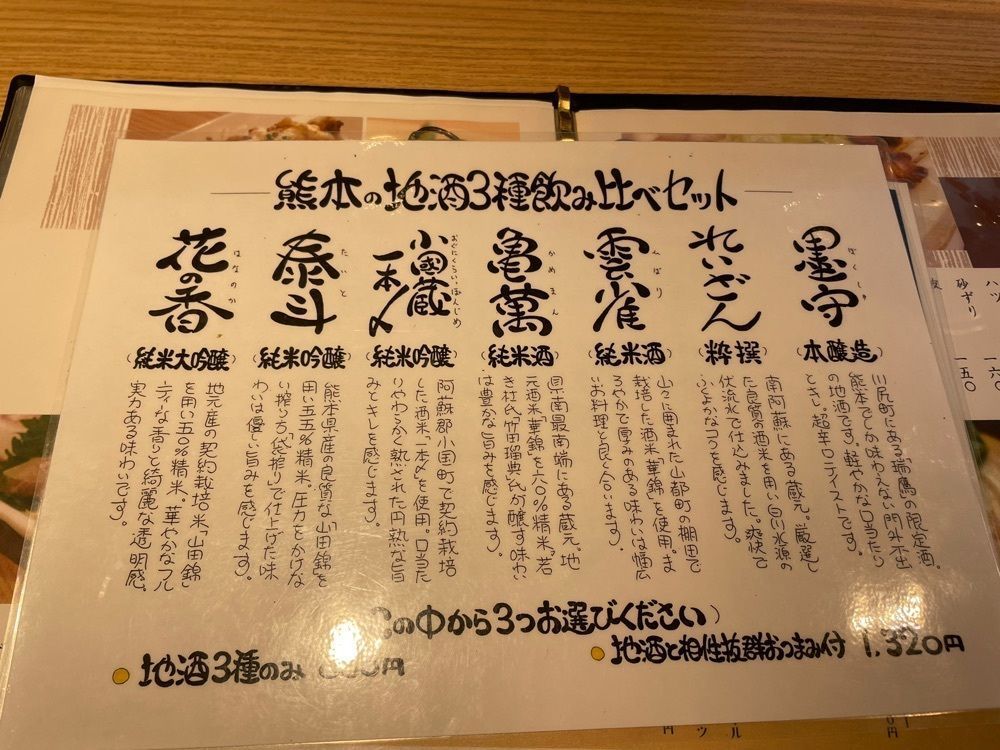 熊本の地酒3種飲み比べセット
墨守
ぼくしゅ
(本醸造)
川尻町にある「瑞鷹」の限定酒。
熊本でしか味わえない門外不出
の地酒です。軽やかな口当たり
ときれい。超辛口テイストです。
れいざん
(粋撰)
南阿蘇にある蔵元。厳選し
た良質の酒米を用い白川水源の
伏流水で仕込みました。爽快で
ふくよかなコクを感じます。
雲雀
ひばり
(純米酒)
山々に囲まれた山都町の棚田で
栽培した酒米「華錦」を使用。ま
ろやかで厚みのある味わいは幅広
いお料理と良く合います。
亀萬
かめまん
(純米酒)
県南最南端にある蔵元。地
元酒米「華錦」を六〇%精米。若
き杜氏「竹田瑠典」氏が醸す味わい
は豊かな旨みを感じます。
小國蔵
一本〆
おぐにくらいっぽんじめ
(純米吟醸)
阿蘇郡小国町で契約栽培
した酒米、「一本〆」を使用。口当た
りやわらかく熟された円熟な旨
みとキレを感じます。
泰斗
たいと
(純米吟醸)
熊本県産の良質な「山田錦」を
用い五五%精米。圧力をかけな
い搾り「古代袋搾り」で仕上げた味
わいは優しい旨みを感じます。
花の香
はなのか
(純米大吟醸)
地元産の契約栽培米「山田錦」
を用い五〇%精米。華やかなフル
ーティな香りと綺麗な透明感。
実力ある味わいです。
の中から3つお選びください)
地酒3種のみ 円
地酒と相性抜群おつまみ付 1,320円
砂ずり
一五〇